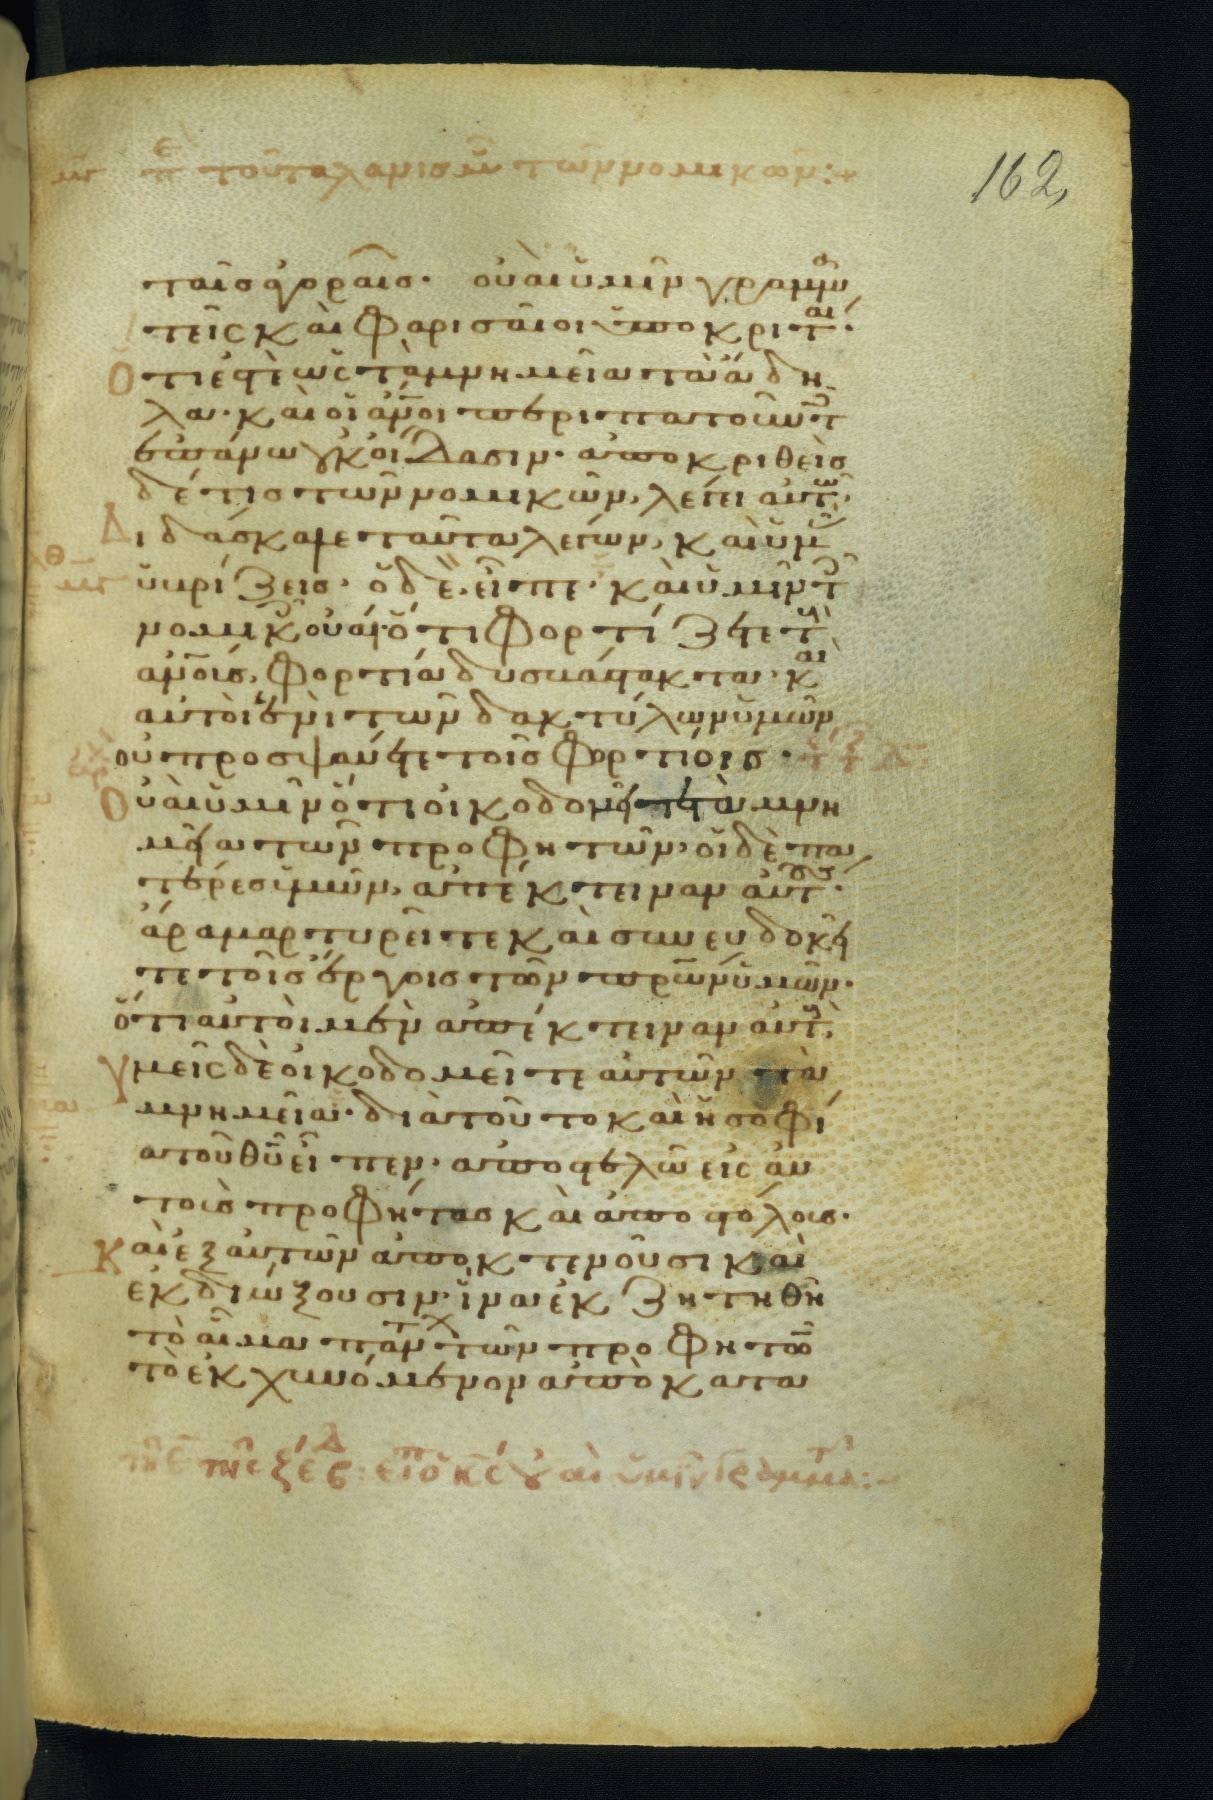 162
ταῖς ἀγοραῖς. οὐαὶ ὑμῖν γραμμα
τεῖς καὶ Φαρισαῖοι ὑποκριταί.
Ὅτι ἐστὲ ὡς τὰ μνημεῖα τὰ ἄδη
λα. καὶ οἱ ἄνοι περιπατοῦντες
ἐπάνω οὐκ οἴδασιν. ἀποκριθεὶς
δέ τις τῶν νομικῶν, λέγει αὐτῷ.
Διδάσκαλε ταῦτα λέγων, καὶ ὑμᾶς
ὑβρίζεις. ὁ δὲ εἶπε. καὶ ὑμῖν τοῖς
νομικοῖς οὐαί. ὅτι φορτίζετε τοὺς
ἀνοις, φορτία δυσβάστακτα. καὶ
αὐτοὶ ἑνὶ τῶν δακτύλων ὑμῶν
οὐ προσψαύετε τοῖς φορτίοις.
Οὐαὶ ὑμῖν ὅτι οἰκοδομεῖτε τὰ μνη
μεῖα τῶν προφητῶν. οἱ δὲ πα
τέρες ὑμῶν, ἀπέκτειναν αὐτούς.
ἄρα μαρτυρεῖτε καὶ συνευδοκεῖ
τε τοῖς ἔργοις τῶν πρων ὑμῶν.
ὅτι αὐτοὶ μὲν ἀπέκτειναν αὐτούς,
Ὑμεῖς δὲ οἰκοδομεῖτε αὐτῶν τὰ
μνημεῖα. διὰ τοῦτο καὶ ἡ σοφί
α τοῦ θυ εἶπεν. ἀποστελῶ εἰς αὐ
τοὺς προφήτας καὶ ἀποστόλους.
Καὶ ἐξ αὐτῶν ἀποκτενοῦσι καὶ
ἐκδιώξουσιν. ἵνα ἐκζητηθῇ
τὸ αἷμα πάντων τῶν προφητῶν
τὸ ἐκχυνόμενον ἀπὸ κατα